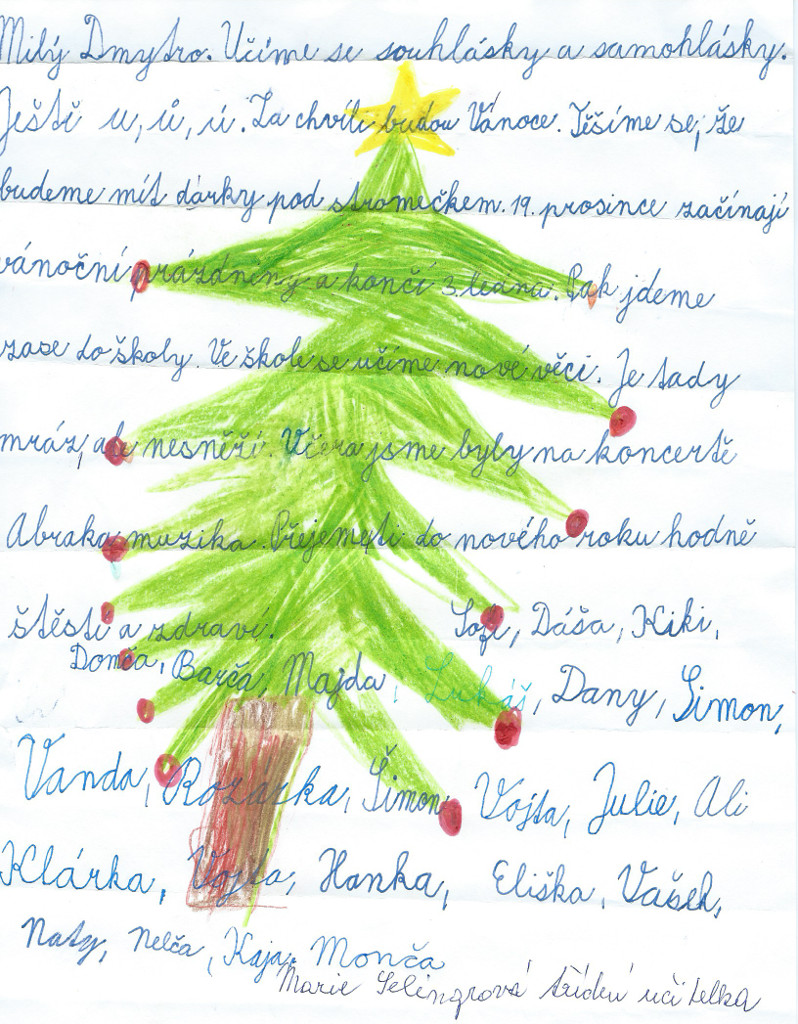 Milý Dmytro. Učíme se souhlásky a samohlásky.
Ještě u, ů, ú. Za chvíli budou Vánoce. Těšíme se, že
budeme mít dárky pod stromečkem. 19. prosince začínají
vánoční prázdniny a končí 3. ledna. Pak jdeme
zase do školy. Ve škole se učíme nové věci. Je tady
mráz, ale nesněží. Včera jsme byly na koncertě
Abraka muzika. Přejeme ti do nového roku hodně
štěstí a zdraví. Sofi, Dáša, Kiki,
Domča, Barča, Majda, Lukáš, Dany, Šimon,
Vanda, Rozárka, Šimon, Vojta, Julie, Ali
Klárka, Vojta, Hanka, Eliška, Vašek,
Naty, Nelča, Kaja, Monča
Marie Selingrová třídní učitelka